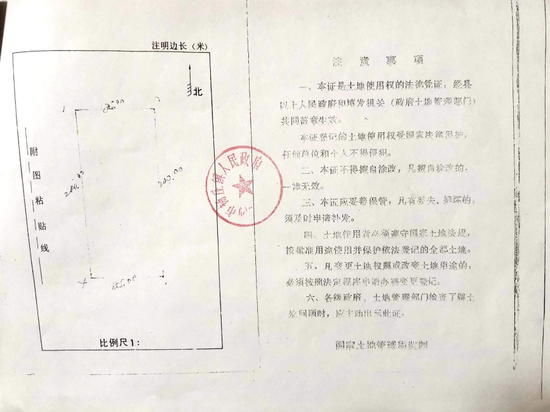 注明边长（米）
北
附图粘贴线
比例尺1：
人民政府
注意事项
一、本证是土地使用权的法律凭证，经县
以上人民政府和填发机关（政府土地管理部门）
共同盖章生效。
本证登记的土地使用权受国家法律保护，
任何单位和个人不得侵犯。
二、本证不得擅自涂改，凡擅自涂改的，
一律无效。
三、本证应妥善保管，凡有丢失、损坏的，
须及时申请补发。
四、土地使用者必须遵守国家土地法规，
按批准用途使用并保护依法登记的全部土地。
五、凡变更土地权属或改变土地用途的，
必须按照法定程序申请办理变更登记。
六、各级政府、土地管理部门检查了解土
地问题时，应主动出示此证。
国家土地管理局监制